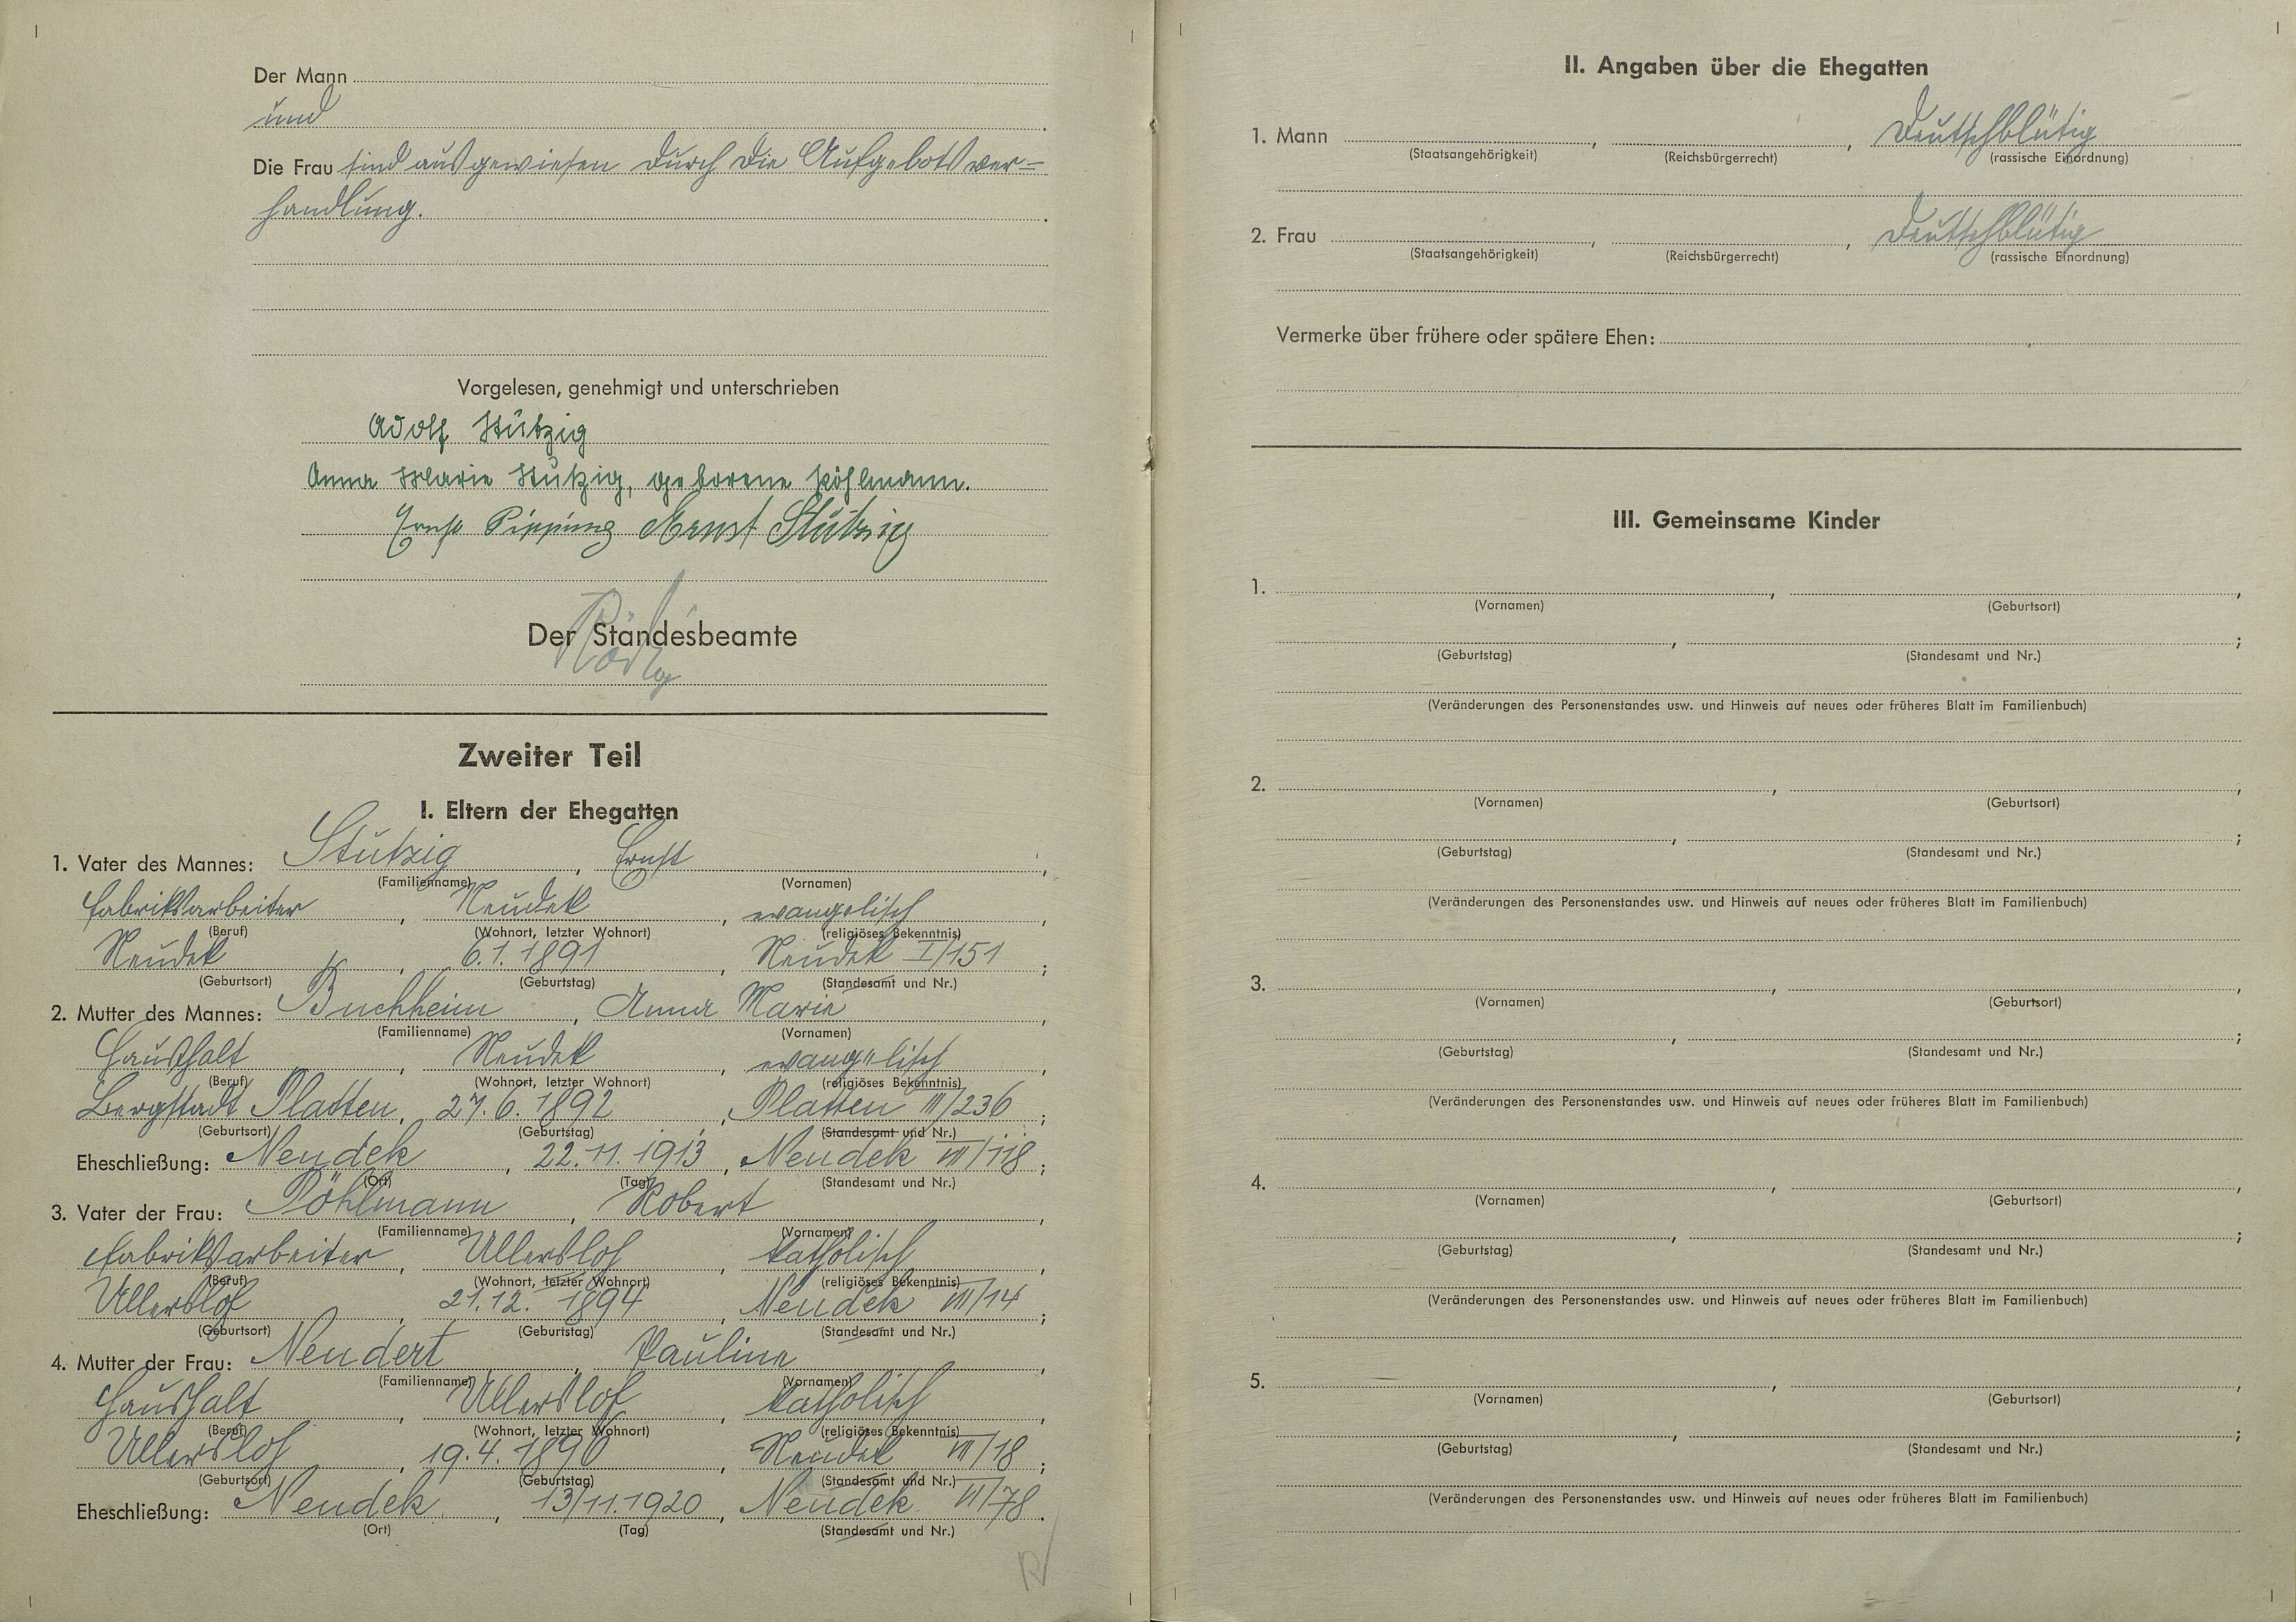 Der Mann
und
Die Frau sind ausgewiesen durch die Aufgebotsver=
handlung.
Vorgelesen, genehmigt und unterschrieben
Adolf Stützig
Anna Marie Stützig, geborene Pöhlmann.
Ernst Pipping Ernst Stützig
Der Standesbeamte
Zweiter Teil
I. Eltern der Ehegatten
1. Vater des Mannes: Stützig, Ernst;
(Familienname) (Vornamen)
Fabriksarbeiter, Neudek, evangelisch,
(Beruf) (Wohnort, letzter Wohnort) (religiöses Bekenntnis)
Neudek, 6.1.1891, Neudek I/151;
(Geburtsort) (Geburtstag) (Standesamt und Nr.)
2. Mutter des Mannes: Buchheim, Anna Marie,
(Familienname) (Vornamen)
Haushalt, Neudek, evangelisch,
(Beruf) (Wohnort, letzter Wohnort) (religiöses Bekenntnis)
Bergstadt Platten, 27.6.1892, Platten III/236;
(Geburtsort) (Geburtstag) (Standesamt und Nr.)
Eheschließung: Neudek, 22.11.1913, Neudek VII/118;
(Ort) (Tag) (Standesamt und Nr.)
3. Vater der Frau: Pöhlmann, Robert,
(Familienname) (Vornamen)
Fabriksarbeiter, Ullersloh, katholisch,
(Beruf) (Wohnort, letzter Wohnort) (religiöses Bekenntnis)
Ullersloh, 21.12.1894, Neudek VII/14;
(Geburtsort) (Geburtstag) (Standesamt und Nr.)
4. Mutter der Frau: Neudert, Pauline,
(Familienname) (Vornamen)
Haushalt, Ullersloh, katholisch,
(Beruf) (Wohnort, letzter Wohnort) (religiöses Bekenntnis)
Ullersloh, 19.4.1896, Neudek VII/18;
(Geburtsort) (Geburtstag) (Standesamt und Nr.)
Eheschließung: Neudek, 13/11.1920, Neudek VI/78.
(Ort) (Tag) (Standesamt und Nr.)
II. Angaben über die Ehegatten
1. Mann , , Deutschblütig
(Staatsangehörigkeit) (Reichsbürgerrecht) (rassische Einordnung)
2. Frau , , Deutschblütig
(Staatsangehörigkeit) (Reichsbürgerrecht) (rassische Einordnung)
Vermerke über frühere oder spätere Ehen:
III. Gemeinsame Kinder
1. , ,
(Vornamen) (Geburtsort)
, ;
(Geburtstag) (Standesamt und Nr.)
(Veränderungen des Personenstandes usw. und Hinweis auf neues oder früheres Blatt im Familienbuch)
2. , ,
(Vornamen) (Geburtsort)
, ;
(Geburtstag) (Standesamt und Nr.)
(Veränderungen des Personenstandes usw. und Hinweis auf neues oder früheres Blatt im Familienbuch)
3. , ,
(Vornamen) (Geburtsort)
, ;
(Geburtstag) (Standesamt und Nr.)
(Veränderungen des Personenstandes usw. und Hinweis auf neues oder früheres Blatt im Familienbuch)
4. , ,
(Vornamen) (Geburtsort)
, ;
(Geburtstag) (Standesamt und Nr.)
(Veränderungen des Personenstandes usw. und Hinweis auf neues oder früheres Blatt im Familienbuch)
5. , ,
(Vornamen) (Geburtsort)
, ;
(Geburtstag) (Standesamt und Nr.)
(Veränderungen des Personenstandes usw. und Hinweis auf neues oder früheres Blatt im Familienbuch)